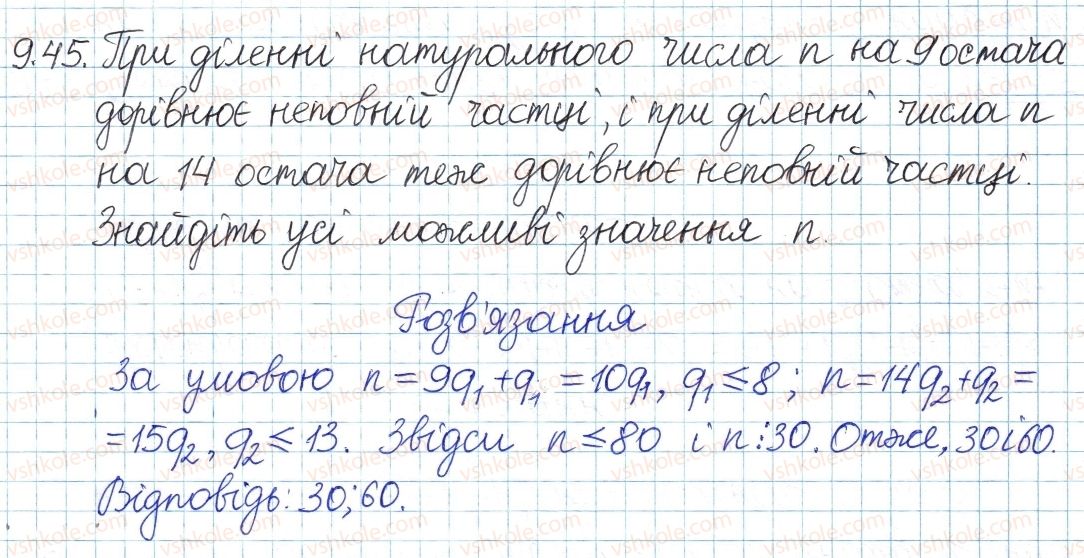 9.45. При діленні натурального числа n на 9 остача
дорівнює неповній частці, і при діленні числа n
на 14 остача теж дорівнює неповній частці.
Знайдіть усі можливі значення n.
Розв'язання
За умовою n = 9q₁ + q₁ = 10q₁, q₁ ≤ 8; n = 14q₂ + q₂ =
= 15q₂, q₂ ≤ 13. Звідси n ≤ 80 і n⋮30. Отже, 30 і 60.
Відповідь: 30; 60.